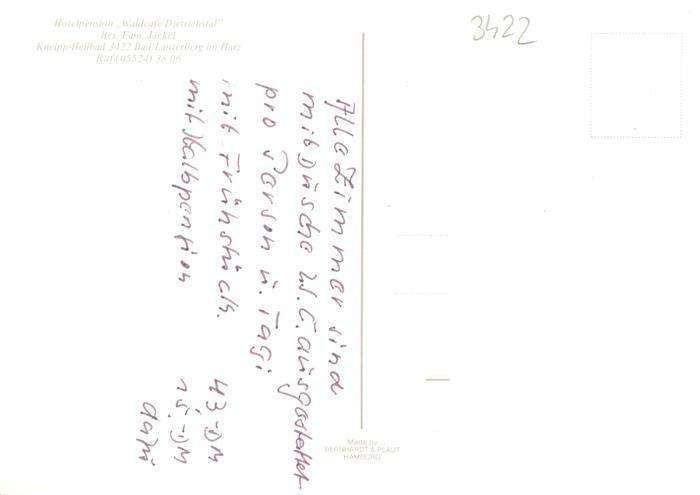 Hotelpension „Waldcafe Dietrichstal"
Bes. Fam. Jäckel
Kneipp-Heilbad 3422 Bad Lauterberg im Harz
Ruf (05524) 38 06
3422
Alle Zimmer sind
mit Dusche W.C. ausgestattet
pro Person u. Tag:
mit Frühstück. 43.-DM
mit Halbpention 15.-DM
dazu
Made by
BERNHARDT & PLAUT
HAMBURG